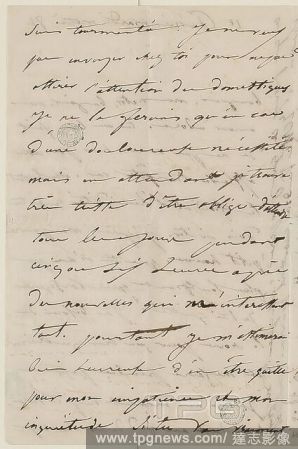 suis tourmenté. Je ne veux
pas envoyer chez toi pour ne pas
attirer l'attention des domestiques
Je ne le ferais qu'en cas
d'une douloureuse nécessité
mais en attendant je trouve
très triste d'être obligé d'attendre
tous les jours pendant
cinq ou six heures après
des nouvelles qui m'intéressent
tant. pourtant je m'estimerai
bien heureux d'en être quitte
pour mon impatience et mon
inquiétude
TPG
www.tpgnews.com/達志影像